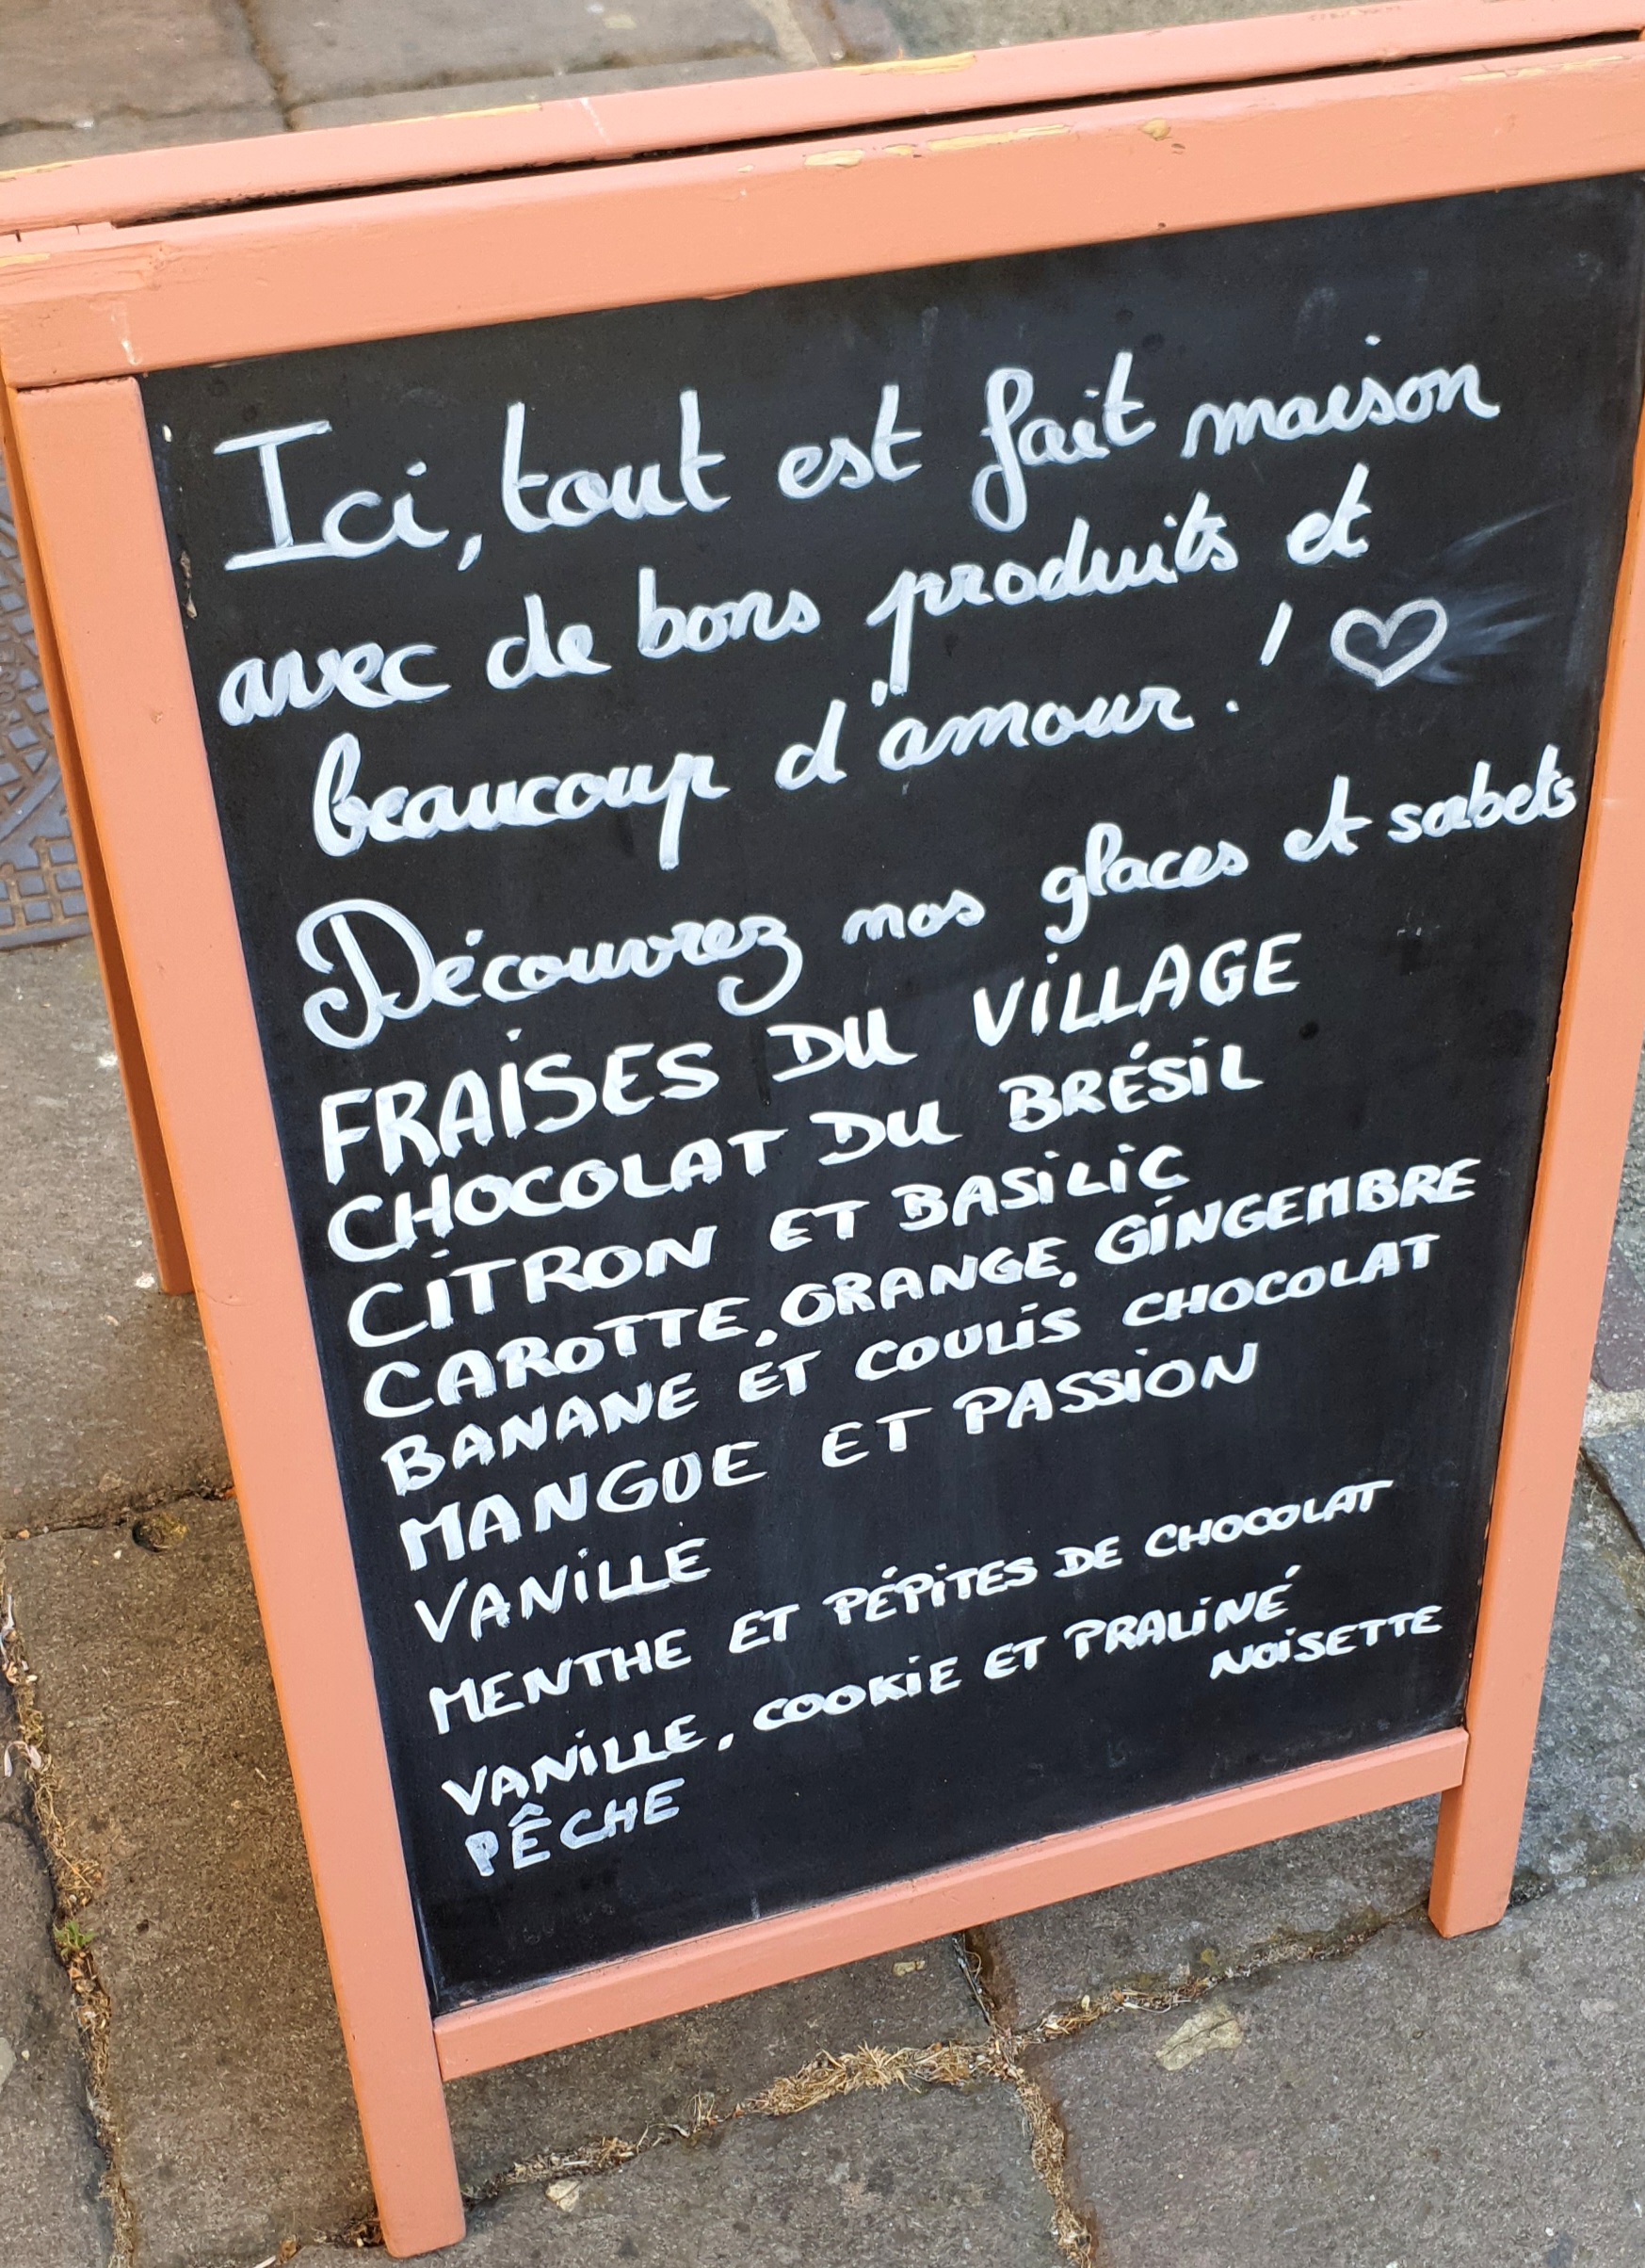 Ici, tout est fait maison
avec de bons produits et
beaucoup d'amour ! ♡
Découvrez nos glaces et sorbets
FRAISES DU VILLAGE
CHOCOLAT DU BRÉSIL
CITRON ET BASILIC
CAROTTE, ORANGE, GINGEMBRE
BANANE ET COULIS CHOCOLAT
MANGUE ET PASSION
VANILLE
MENTHE ET PÉPITES DE CHOCOLAT
VANILLE, COOKIE ET PRALINÉ
NOISETTE
PÊCHE